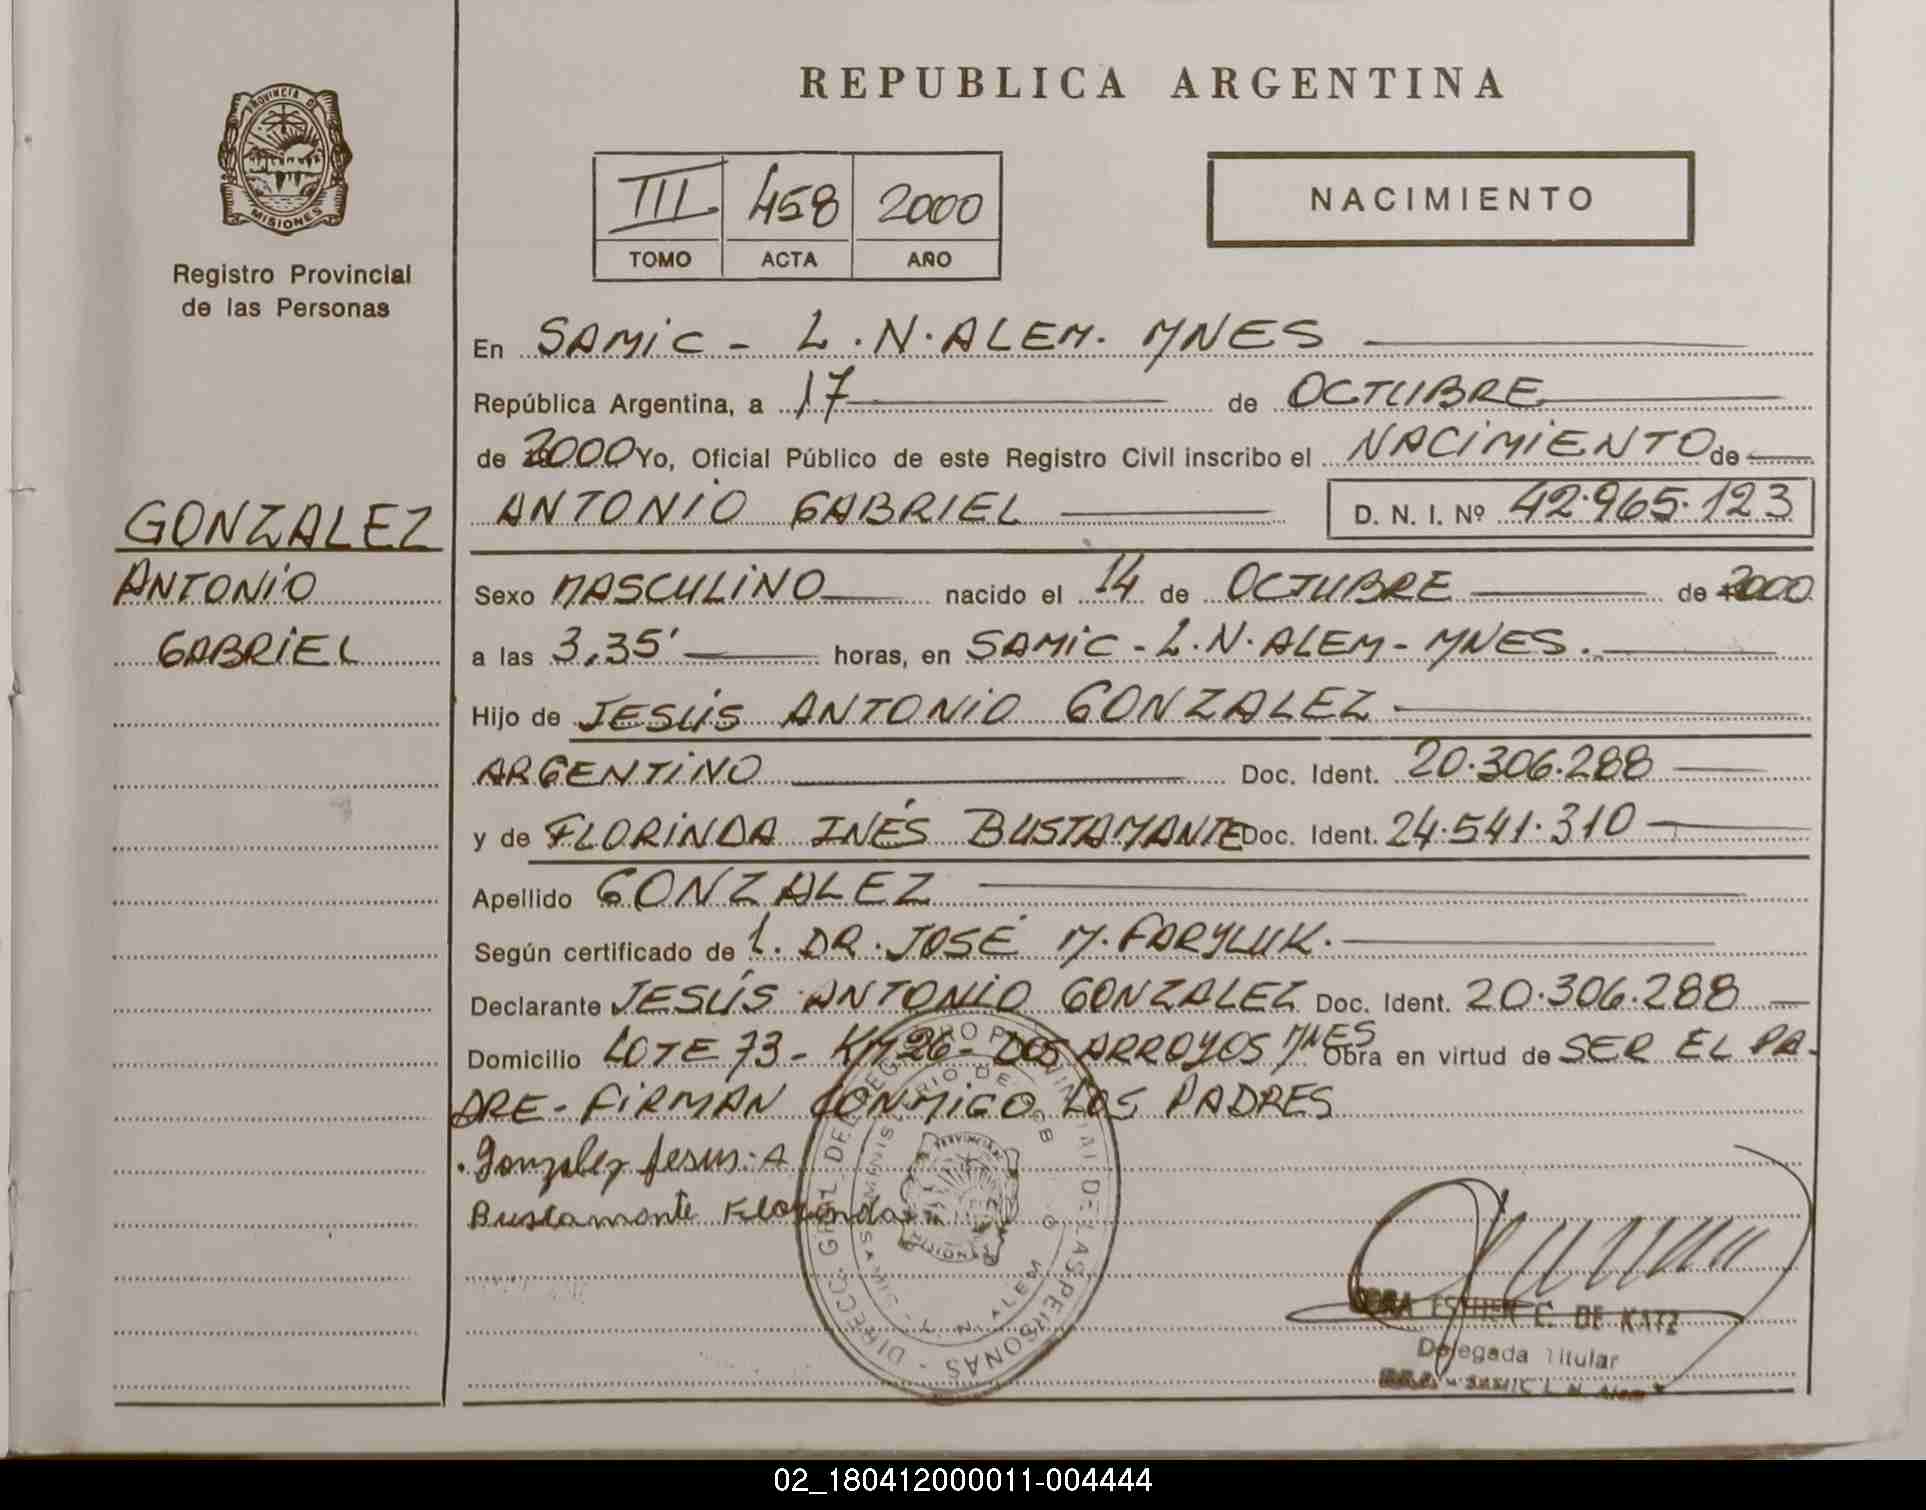 PROVINCIA DE
MISIONES
Registro Provincial
de las Personas
GONZALEZ
ANTONIO
GABRIEL
REPUBLICA ARGENTINA
III 458 2000
TOMO ACTA AÑO
NACIMIENTO
En SAMIC - L.N. ALEM. MNES
República Argentina, a 17 de OCTUBRE
de 2000 Yo, Oficial Público de este Registro Civil inscribo el NACIMIENTO de
ANTONIO GABRIEL D. N. I. Nº 42.965.123
Sexo MASCULINO nacido el 14 de OCTUBRE de 2000
a las 3,35' horas, en SAMIC - L.N. ALEM - MNES.
Hijo de JESÚS ANTONIO GONZALEZ
ARGENTINO Doc. Ident. 20.306.288
y de FLORINDA INÉS BUSTAMANTE Doc. Ident. 24.541.310
Apellido GONZALEZ
Según certificado de 1. DR. JOSÉ M. FARYLUK.
Declarante JESÚS ANTONIO GONZALEZ Doc. Ident. 20.306.288
Domicilio LOTE 73 - KM 26 - DOS ARROYOS MNES Obra en virtud de SER EL PA-
DRE - FIRMAN CONMIGO LOS PADRES
Gonzalez Jesus. A
Bustamante Florinda
ESTHER C. DE KATZ
Delegada Titular
SAMIC L. N. Alem
02_180412000011-004444